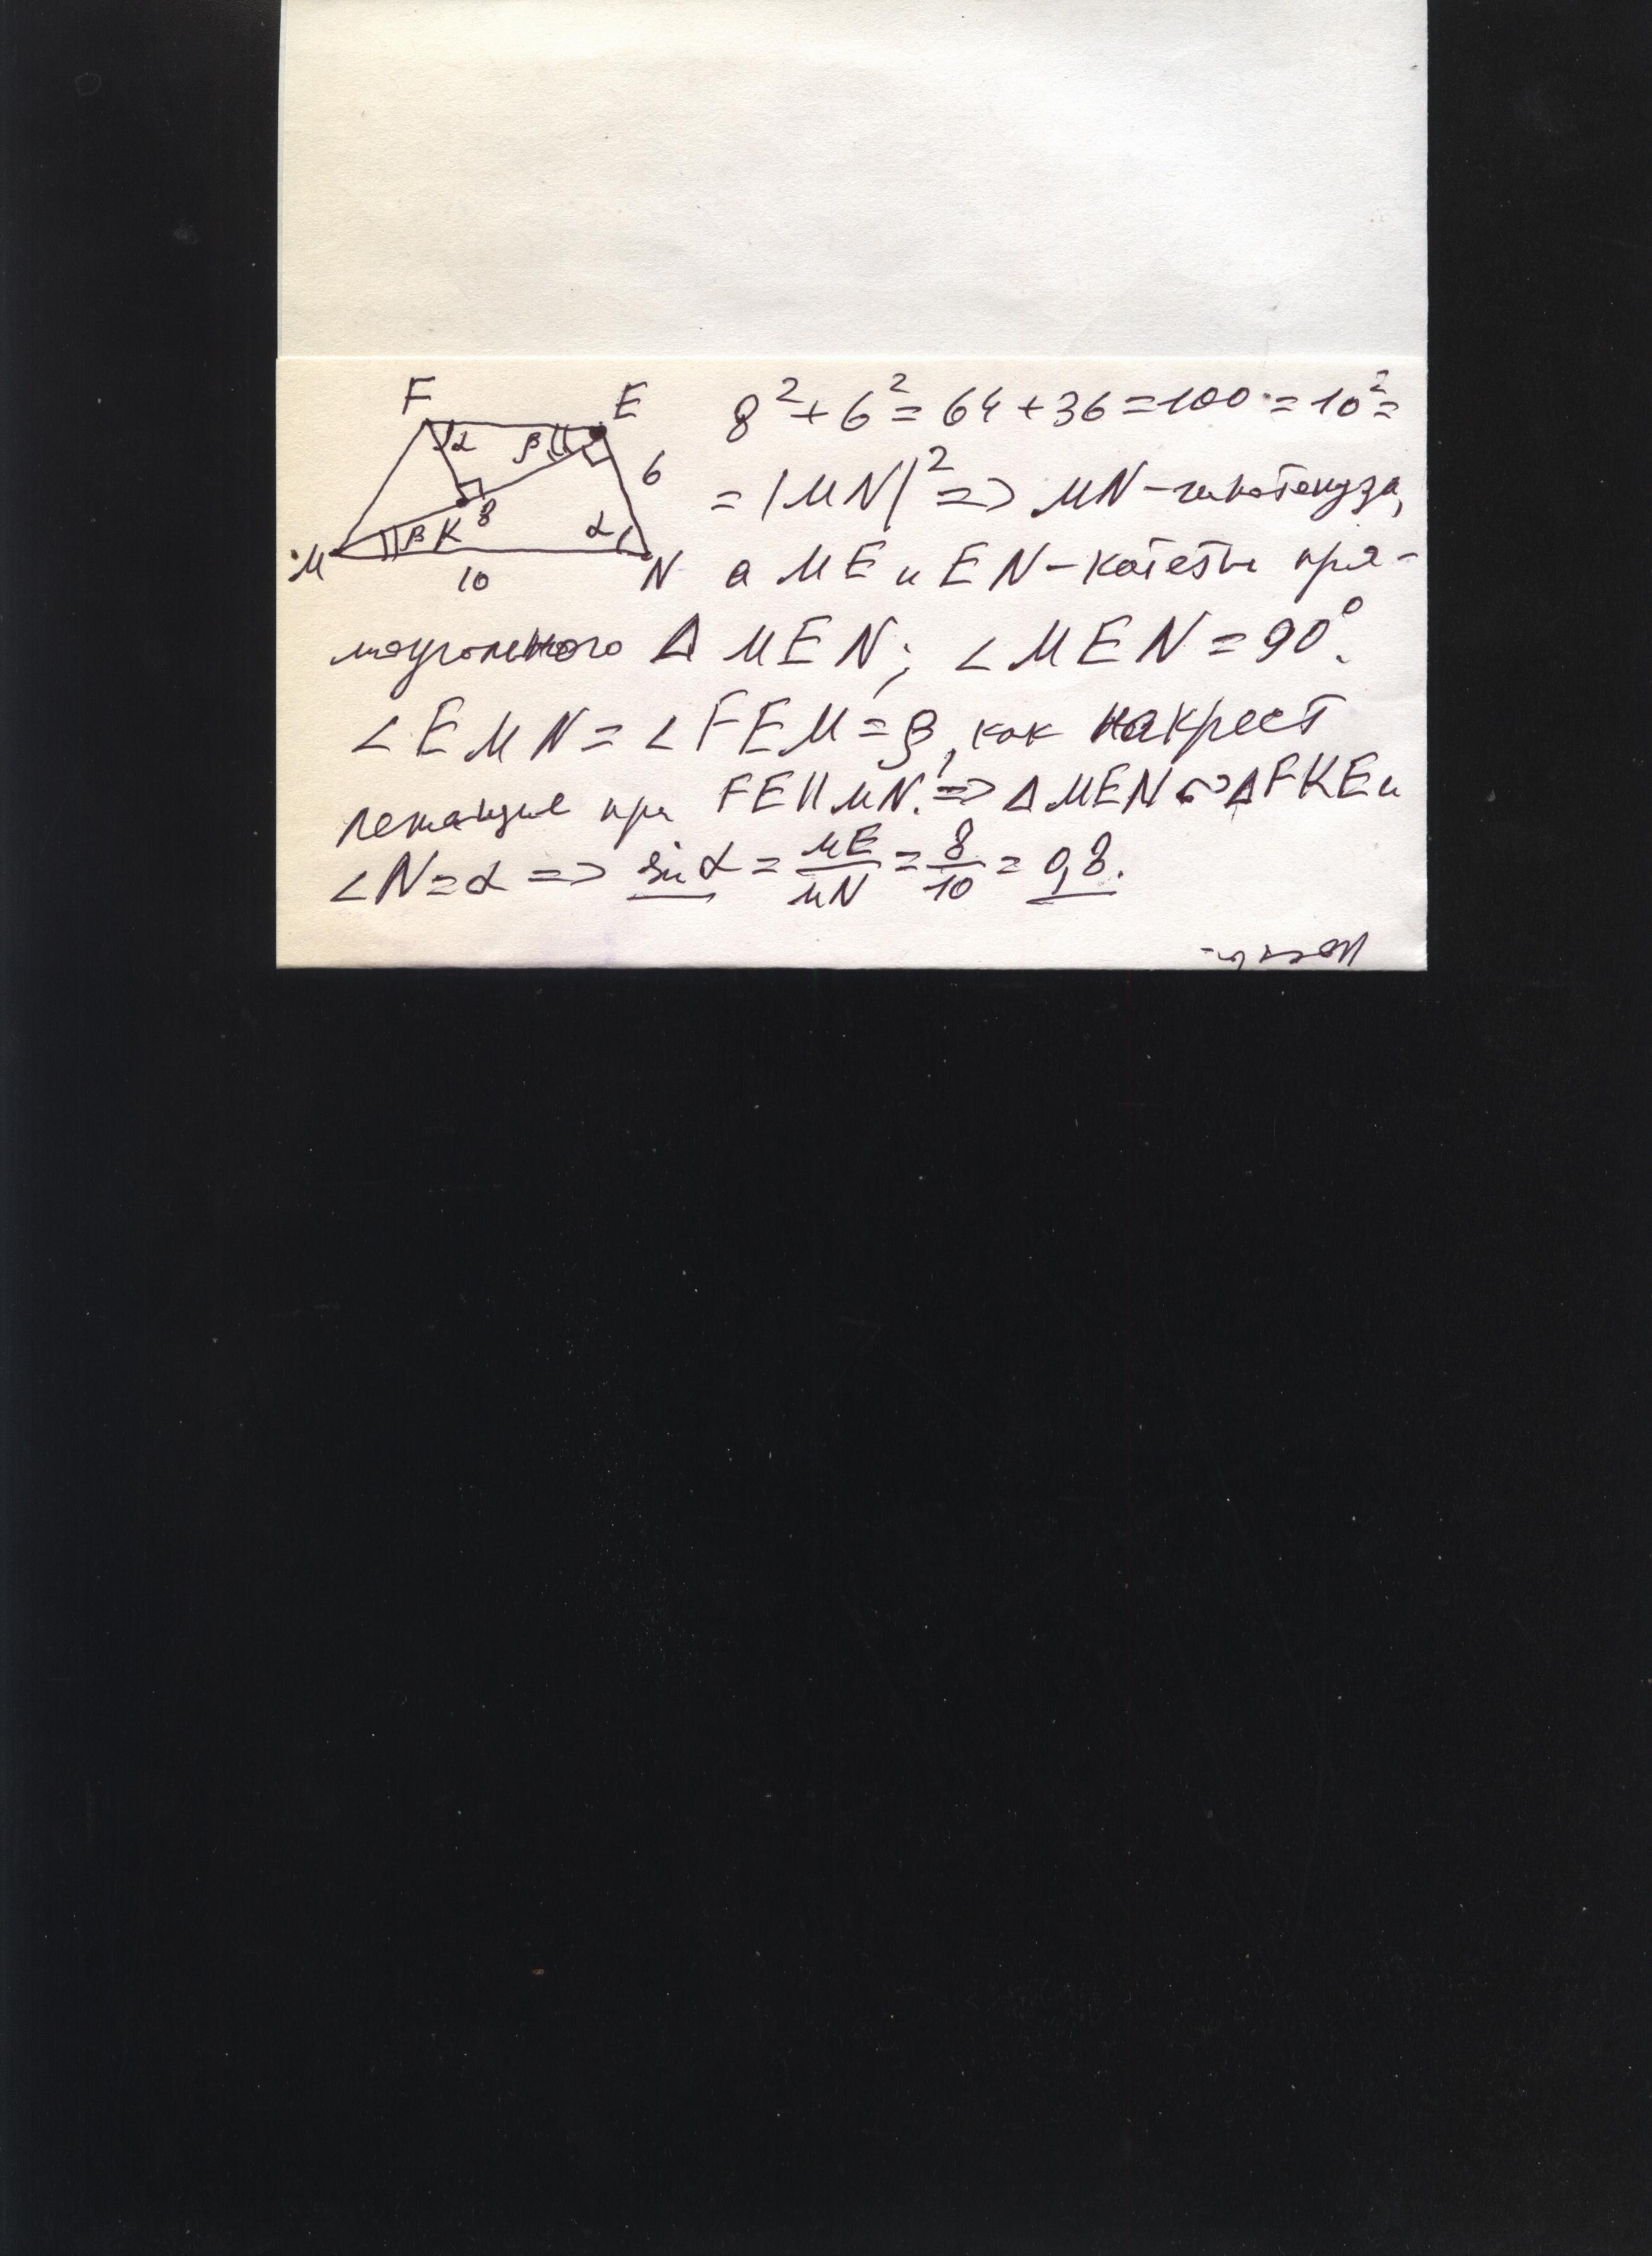 F E
α β
6
K 8
β α
M 10 N
8² + 6² = 64 + 36 = 100 = 10² =
= |MN|² => MN – гипотенуза,
а ME и EN – катеты пря-
моугольного Δ MEN; ∠MEN = 90°.
∠EMN = ∠FEM = β, как накрест
лежащие при FE || MN. => ΔMEN ∾ ΔFKE и
∠N = α => sin α = ME/MN = 8/10 = 0,8.